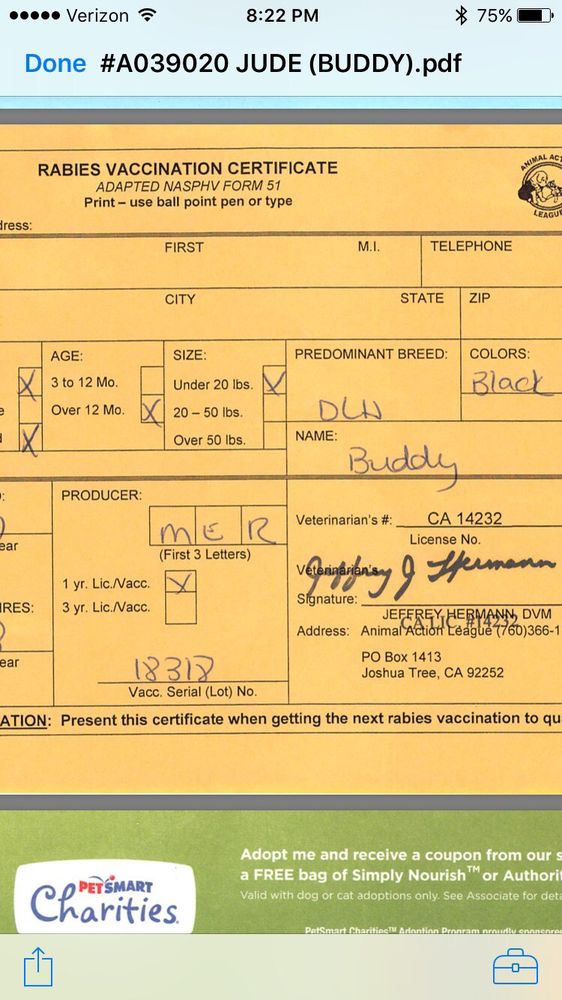 Verizon 8:22 PM 75%
Done #A039020 JUDE (BUDDY).pdf
RABIES VACCINATION CERTIFICATE
ADAPTED NASPHV FORM 51
Print – use ball point pen or type
ANIMAL ACT
LEAGUE
dress:
FIRST M.I. TELEPHONE
CITY STATE ZIP
AGE: SIZE: PREDOMINANT BREED: COLORS:
X 3 to 12 Mo. Under 20 lbs. X Black
e Over 12 Mo. X 20 – 50 lbs. DLH
X Over 50 lbs. NAME:
Buddy
PRODUCER:
MER Veterinarian's #: CA 14232
ear (First 3 Letters) License No.
1 yr. Lic./Vacc. X Veterinarian's Jeffrey J Hermann
IRES: 3 yr. Lic./Vacc. Signature:
JEFFREY HERMANN, DVM
CA LIC #14232
Address: Animal Action League (760)366-1
ear 18318 PO Box 1413
Vacc. Serial (Lot) No. Joshua Tree, CA 92252
ATION: Present this certificate when getting the next rabies vaccination to qu
Adopt me and receive a coupon from our s
a FREE bag of Simply Nourish™ or Authorit
Valid with dog or cat adoptions only. See Associate for deta
PETSMART
Charities
PetSmart Charities™ Adoption Program proudly sponsore